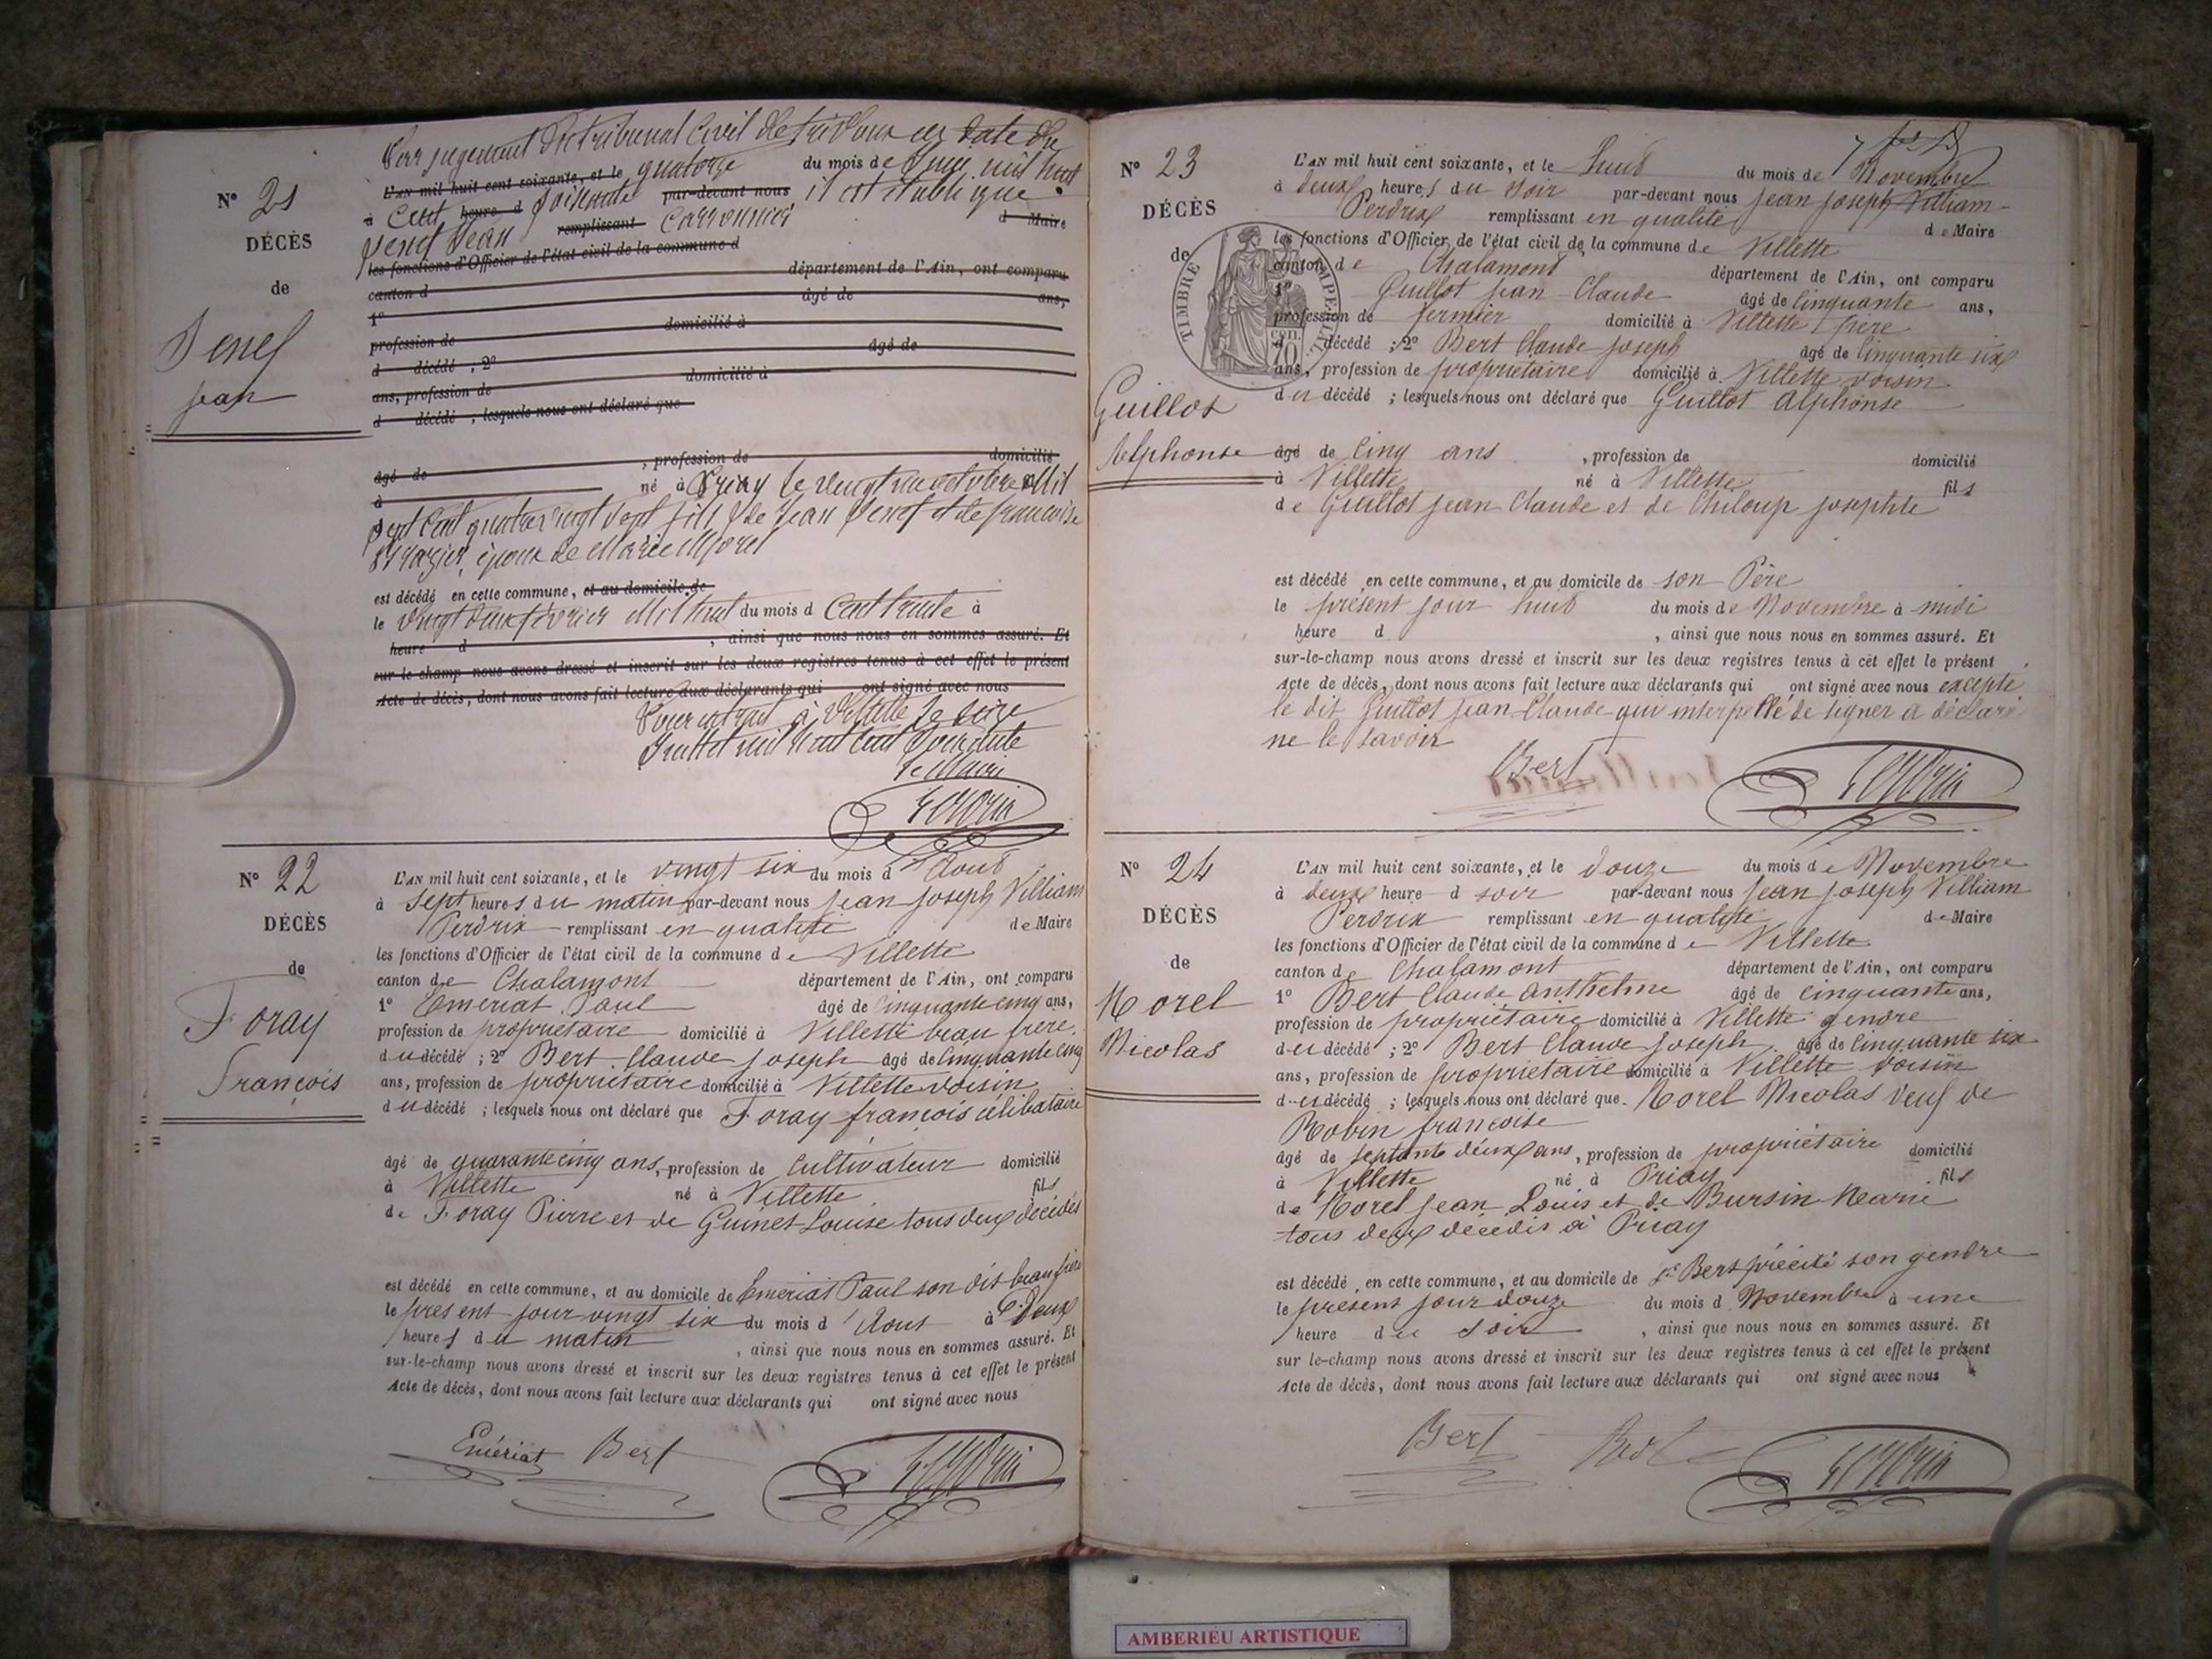 Nº 21
DÉCÈS
de
Senef
jean
Par jugement du tribunal Civil de trévoux en date du
L'AN mil huit cent soixante, et le quatorze du mois de mil huit
à Cent heure d soixante par-devant nous il est établi que
Senef Jean remplissant d Maire
les fonctions d'Officier de l'état civil de la commune d
canton d département de l'Ain, ont comparu
1º âgé de ans,
profession de domicilié à
d décédé ; 2º âgé de
ans, profession de domicilié à
d décédé ; lesquels nous ont déclaré que
âgé de , profession de domicilié
à né à Priay le vingt octobre Mil
Sept Cent quatre vingt Sept fils de Jean Senef et de francoise
époux de Marie Morel
est décédé en cette commune, et au domicile de
le Vingt deux février Mil huit du mois d Cent trente à
heure d , ainsi que nous nous en sommes assuré. Et
sur-le-champ nous avons dressé et inscrit sur les deux registres tenus à cet effet le présent
Acte de décès, dont nous avons fait lecture aux déclarants qui ont signé avec nous
Pour extrait à Villette le seize
Juillet mil huit Cent Soixante
le Maire
Nº 22
DÉCÈS
de
Foray
François
L'AN mil huit cent soixante, et le vingt six du mois d'Aout
à Sept heures du matin par-devant nous jean joseph Villiam
Perdrix remplissant en qualité de Maire
les fonctions d'Officier de l'état civil de la commune de Villette
canton de Chalamont département de l'Ain, ont comparu
1º Emeriat Paul âgé de Cinquante cinq ans,
profession de propriétaire domicilié à Villette beau frère
du décédé ; 2º Bert Claude joseph âgé de Cinquante cinq
ans, profession de propriétaire domicilié à Villette voisin
du décédé ; lesquels nous ont déclaré que Foray francois célibataire
âgé de quarante cinq ans, profession de Cultivateur domicilié
à Villette né à Villette fils
de Foray Pierre et de Guinet Louise tous deux décédés
est décédé en cette commune, et au domicile de Emeriat Paul son dit beau frère
le present jour vingt six du mois d'Aout à Deux
heures du matin , ainsi que nous nous en sommes assuré. Et
sur-le-champ nous avons dressé et inscrit sur les deux registres tenus à cet effet le présent
Acte de décès, dont nous avons fait lecture aux déclarants qui ont signé avec nous
Emériat Bert
Nº 23
DÉCÈS
de
TIMBRE IMPERIAL
70 cen.
Guillot
Alphonse
L'AN mil huit cent soixante, et le huit du mois de Novembre
à deux heures du soir par-devant nous jean joseph Villiam-
Perdrix remplissant en qualité de Maire
les fonctions d'Officier de l'état civil de la commune de Villette
canton de Chalamont département de l'Ain, ont comparu
1º Guillot jean Claude âgé de Cinquante ans,
profession de fermier domicilié à Villette père
d décédé ; 2º Bert Claude joseph âgé de Cinquante six
ans, profession de propriétaire domicilié à Villette voisin
du décédé ; lesquels nous ont déclaré que Guillot Alphonse
âgé de Cinq ans , profession de domicilié
à Villette né à Villette fils
de Guillot jean Claude et de Chiloup josephte
est décédé en cette commune, et au domicile de son Père
le présent jour huit du mois de Novembre à midi
heure d , ainsi que nous nous en sommes assuré. Et
sur-le-champ nous avons dressé et inscrit sur les deux registres tenus à cet effet le présent
Acte de décès, dont nous avons fait lecture aux déclarants qui ont signé avec nous excepté
le dit Guillot jean Claude qui interpellé de signer a déclaré
ne le savoir
Bert
Nº 24
DÉCÈS
de
Morel
Nicolas
L'AN mil huit cent soixante, et le douze du mois de Novembre
à deux heure d soir par-devant nous jean joseph Villiam
Perdrix remplissant en qualité de Maire
les fonctions d'Officier de l'état civil de la commune de Villette
canton de Chalamont département de l'Ain, ont comparu
1º Bert Claude Anthelme âgé de cinquante ans,
profession de propriétaire domicilié à Villette gendre
du décédé ; 2º Bert Claude joseph âgé de Cinquante six
ans, profession de propriétaire domicilié à Villette voisin
du décédé ; lesquels nous ont déclaré que Morel Nicolas veuf de
Robin francoise
âgé de septante deux ans, profession de propriétaire domicilié
à Villette né à Priay fils
de Morel jean Louis et de Bursin Marie
tous deux décédés à Priay
est décédé en cette commune, et au domicile de Bert précité son gendre
le présent jour douze du mois d Novembre à une
heure du soir , ainsi que nous nous en sommes assuré. Et
sur le-champ nous avons dressé et inscrit sur les deux registres tenus à cet effet le présent
Acte de décès, dont nous avons fait lecture aux déclarants qui ont signé avec nous
Bert Bert
AMBERIEU ARTISTIQUE